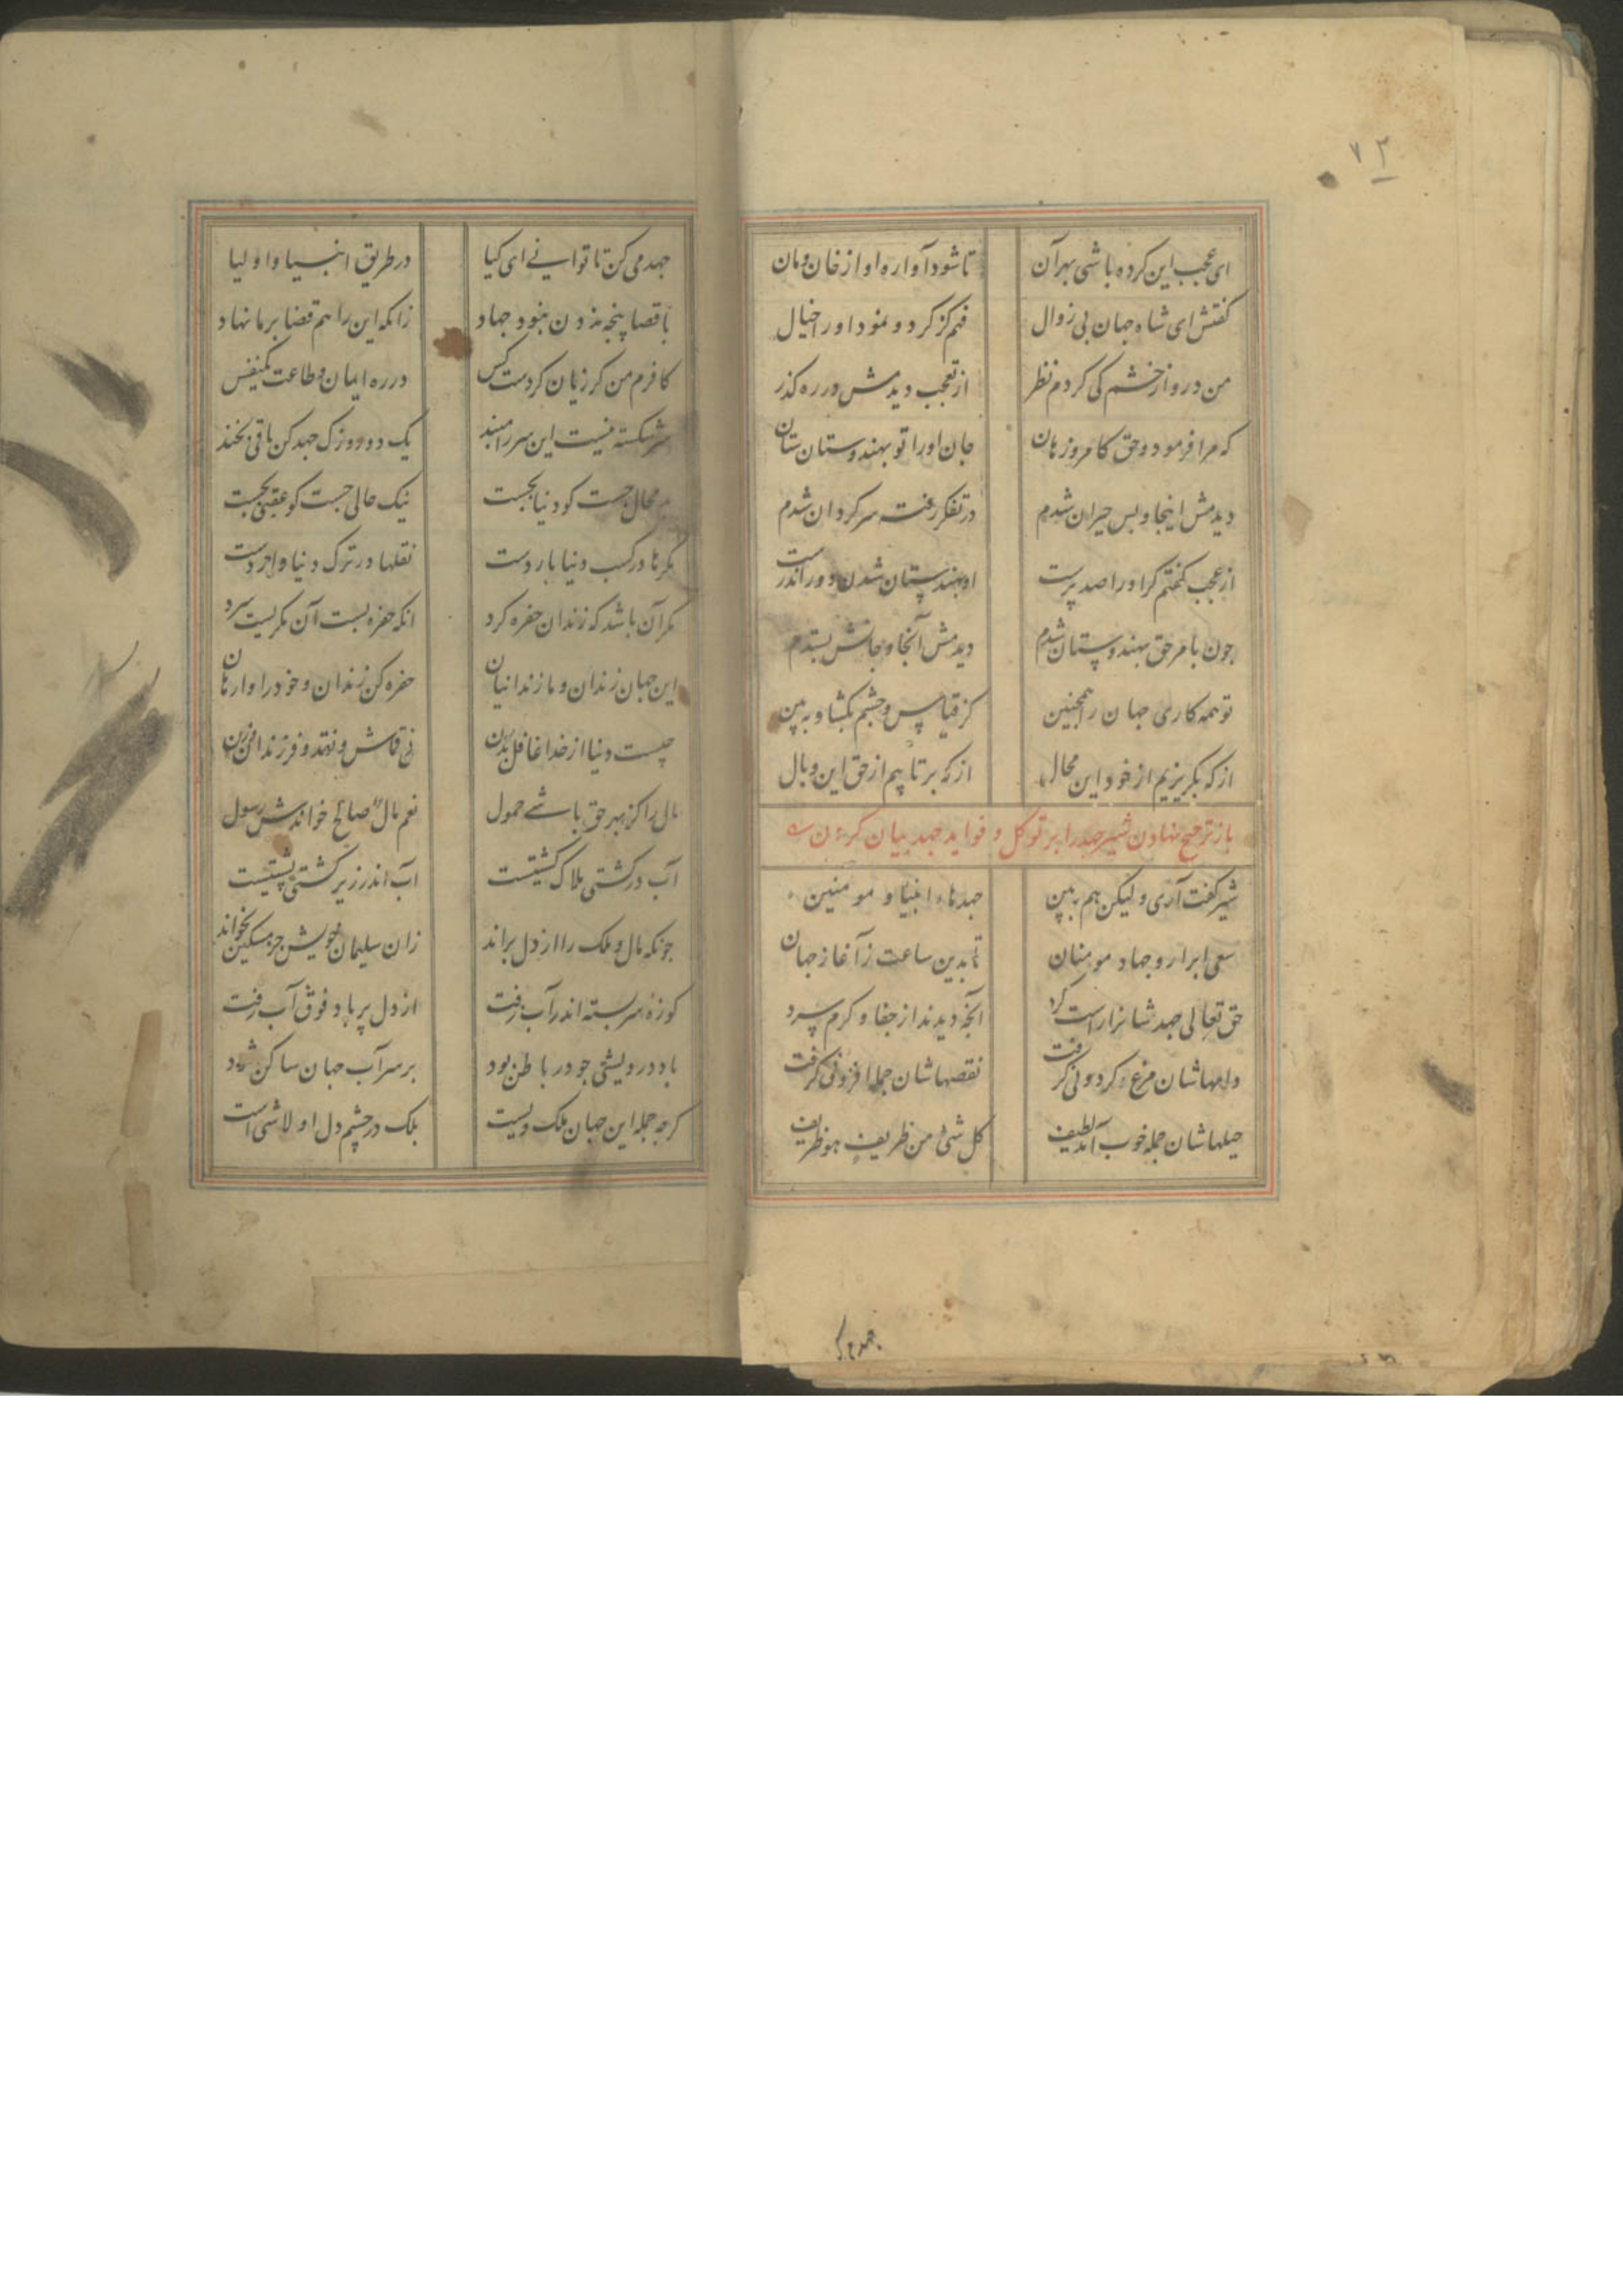 ۷۲
ای عجب این کرده باشی بهر آن تا شود آواره او از خان و مان
کفتش ای شاه جهان بی زوال فهم کژ کرد و نمود او را خیال
من درو از خشم کی کردم نظر از تعجب دیدمش در ره کذر
که مرا فرمود حق کامروز هان جان اورا تو بهندوستان ستان
دیدمش اینجا و بس حیران شدم در تفکر رفته سرکردان شدم
از عجب کفتم کر اورا صد پرست او بهندستان شدن دور اندرست
چون بامر حق بهندوستان شدم دیدمش آنجا و جانش بستدم
تو همه کاری جهان را همچنین کن قیاس و چشم بکشا و ببین
از که بکریزیم از خود این محال از که برتابیم از حق این وبال
باز ترجیح نهادن شیر جهد را بر توکل و فواید جهد بیان کردن
شیر کفت آری ولیکن هم ببین جهدهاء انبیا و مومنین
سعی ابرار و جهاد مومنان تا بدین ساعت ز آغاز جهان
حق تعالی جهدشانرا راست کرد آنچه دیدند از جفا و کرم و سرد
دامهاشان مرغ کردونی کرفت نقصهاشان جمله افزونی کرفت
حیلهاشان جمله خوب آمد لطیف کل شیء من ظریف هو ظریف
جهد می کن
جهد می کن تا توانی ای کیا در طریق انبیا و اولیا
با قضا پنجه زدن نبود جهاد زانکه این را هم قضا بر ما نهاد
کافرم من کر زیان کردست کس در ره ایمان و طاعت یکنفس
سر شکسته نیست این سر را مبند یک دو روزک جهد کن باقی بخند
بد محال جست کو دنیا بجست نیک حالی جست کو عقبی بجست
مکرها در کسب دنیا باردست نقلها در ترک دنیا واردست
مکر آن باشد که زندان حفره کرد انکه حفره بست آن مکریست سرد
این جهان زندان و ما زندانیان حفره کن زندان و خود را وارهان
چیست دنیا از خدا غافل بدن نی قماش و نقد و فرزندان و زن
مال را کز بهر حق باشی حمول نعم مال صالح خواندش رسول
آب در کشتی هلاک کشتیست آب اندر زیر کشتی پشتیست
چونکه مال و ملک را از دل براند زان سلیمان خویش جز مسکین نخواند
کوزه سر بسته اندر آب رفت از دل پر باد فوق آب رفت
باد درویشی چو در باطن بود بر سر آب جهان ساکن شود
کرچه جمله این جهان ملک ویست ملک در چشم دل او لا شی است